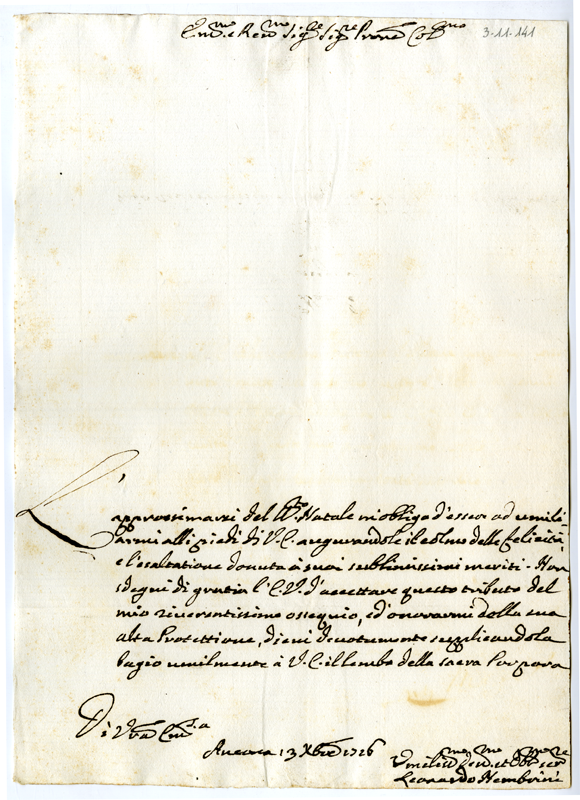 Em.mo e Rev.mo Sig.re Sig.re Prone Col.mo
3-11-141
L'approssimarsi del SS.mo Natale m'obliga d'esser ad umili=
armi alli piedi di V.E. augurandole il colmo delle felicità,
e l'esaltatione douuta à suoi sublimissimi meriti. Non
sdegni di gratia l'E.V. d'accettare questo tributo del
mio riuerentissimo ossequio, ed'onorarmi della sua
alta Protettione, di cui deuotamente supplicandola
bagio umilmente à V.E. il lembo della sacra Porpora
Di V.ra Em.za
Ancona 13 Xbre 1716
Umiliss.mo Deu.mo et Obb.mo Ser.re
Leonardo